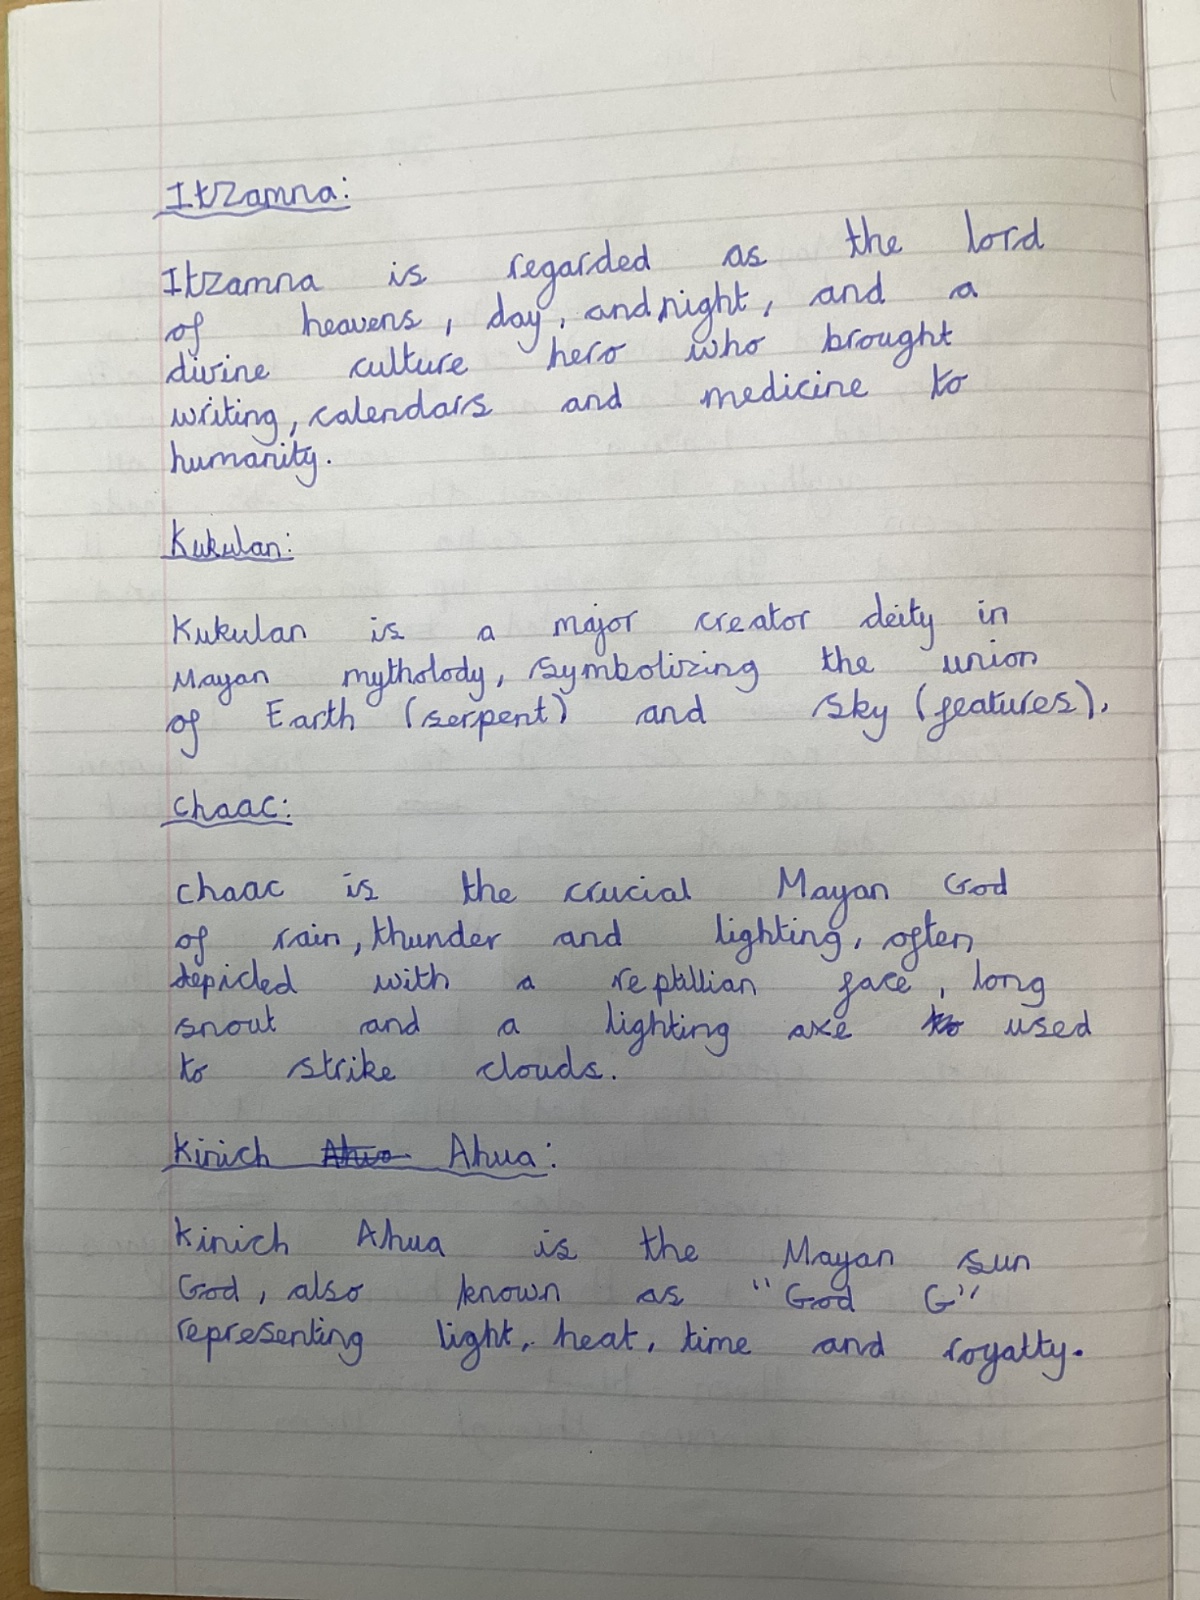 Itzamna:
Itzamna is regarded as the lord
of heavens, day, and night, and a
divine culture hero who brought
writing, calendars and medicine to
humanity.
Kukulan:
Kukulan is a major creator deity in
Mayan mytholody, symbolizing the union
of Earth (serpent) and sky (features).
Chaac:
Chaac is the crucial Mayan God
of rain, thunder and lighting, often
depicted with a reptillian face, long
snout and a lighting axe used
to strike clouds.
Kinich Ahua:
Kinich Ahua is the Mayan sun
God, also known as "God G"
representing light, heat, time and royalty.